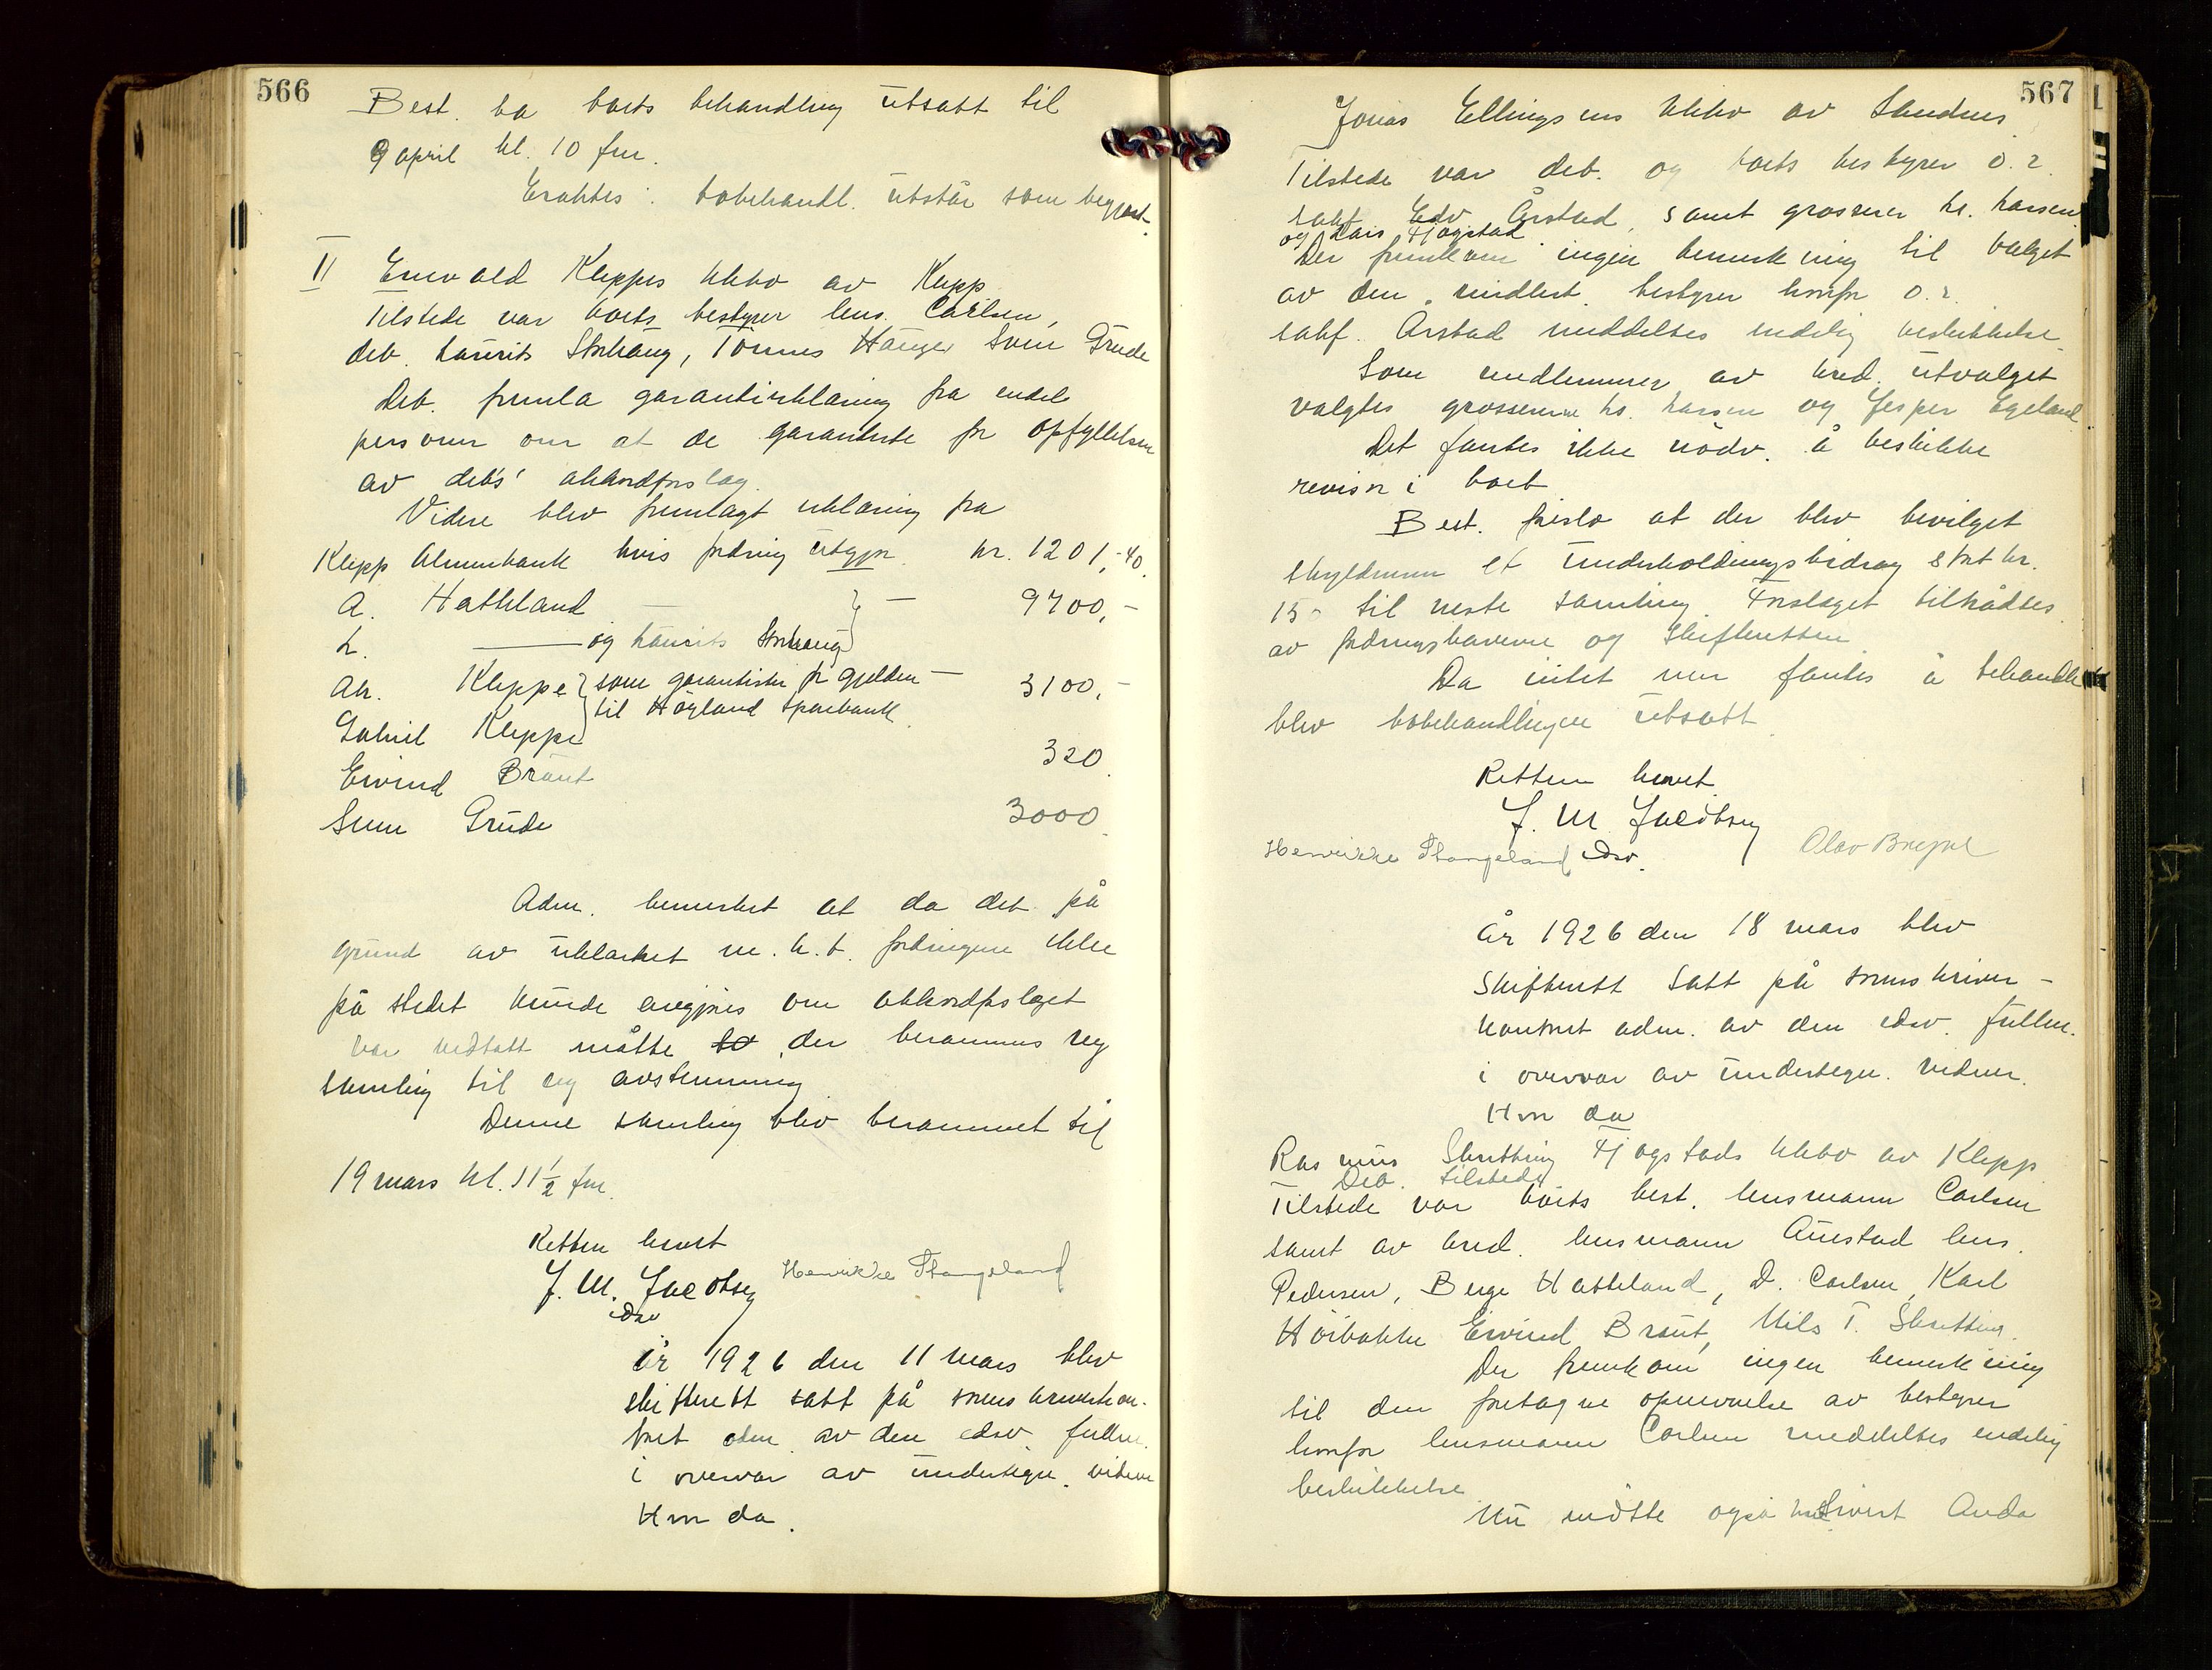 566
Best. ba boets behandling utsatt til
9 april kl. 10 fm.
Eraktes: bobehandl. utstår som begjært.
II Enevald Kleppes kkbo av Klepp
Tilstede var boets bestyrer lens. Carlsen,
deb. Laurits Storhaug, Tönnes Hauge, Sven Grude
Deb. fremla garantierklæring fra endel
personer om at de garanterte for opfyllelsen
av debs' akkordforslag.
Videre blev fremlagt erklæring fra
Klepp Almenbank hvis fordring utgjør kr. 1201,40
A. Hatteland — 9700,-
L. — og Laurits Storhaug
Ah. Kleppe som garantister for gjelden — 3100,-
Gabriel Kleppe til Høyland Sparebank
Eivind Braut 320
Sven Grude 3000.
Adm. bemerket at da det på
grund av uklarhet m.h.t. fordringene ikke
på stedet kunde avgjøres om akkordforslaget
var vedtatt måtte der berammes ny
samling til ny avstemning
Denne samling blev berammet til
19 mars kl. 11 1/2 fm.
Retten hevet
J. M. Jacobsen Henrikke Stangeland
edsv
År 1926 den 11 mars blev
skifterett satt på sorenskriverkon-
toret adm. av den edsv. fullm.
i overvær av undertegn. vidner
Hvor da.
567
Jonas Ellingsens kkbo av Sandnes.
Tilstede var deb. og boets bestyrer o.r.
sakf. Edv. Årstad, samt grosserer hr. Larsen
og Lars Fjogstad.
Der fremkom ingen bemerkning til valget
av den midlert. bestyrer hvorfor o.r.
sakf. Årstad meddeltes endelig beskikkelse.
Som medlemmer av kred. utvalget
valgtes grossererne hr. Larsen og Jesper Egeland
Det fantes ikke nödv. å beskikke
revisor i boet
Best. foreslo at der blev bevilget
skyldneren et underholdningsbidrag stort kr.
150 til neste samling. Forslaget tilrådtes
av fordringshaverne og Skifteretten
Da intet mer fantes å behandle
blev bobehandlingen utsatt
Retten hevet
J. M. Jacobsen
Henrikke Stangeland edsv. Olav
År 1926 den 18 mars blev
Skifterett satt på sorenskriver-
kontoret adm. av den edsv. fullm.
i overvær av undertegn. vidner.
Hvor da
Rasmus Skretting Fjogstads kkbo av Klepp
Deb. tilstede
Tilstede var boets best. lensmann Carlsen
samt av kred. lensmann Aurstad lens.
Pedersen, Berge Hatteland, D. Carlsen, Karl
Höibakke Eivind Braut, Nils T. Skretting.
Der fremkom ingen bemerkning
til den foretagne opnevnelse av bestyrer
hvorfor lensmann Carlsen meddeltes endelig
beskikkelse
Nu mötte også Sivert Anda